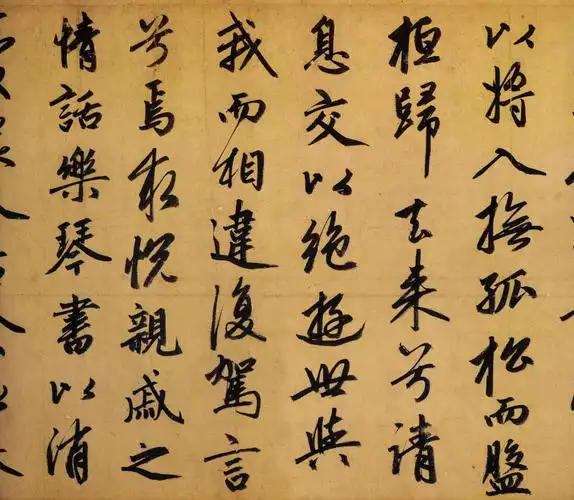 以將入撫孤松而盤
桓歸去来兮請
息交以絶游世與
我而相違復駕言
兮焉求悅親戚之
情話樂琴書以消